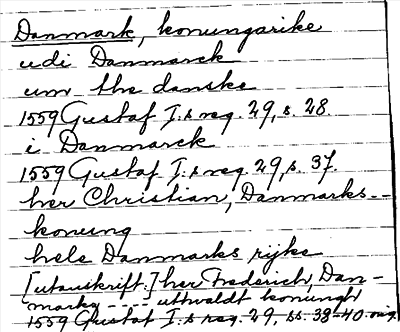 Danmark, konungarike
udi Danmarck
um the danske
1559 Gustaf I:s reg. 29, s. 28.
i Danmarck
1559 Gustaf I:s reg. 29, s. 37.
her Christian, Danmarks --
konung
hele Danmarks rijke
[utanskrift:] her Frederich, Dan-
marks ---- uthwaldt konungh
1559 Gustaf I:s reg. 29, ss. 38-40. orig.